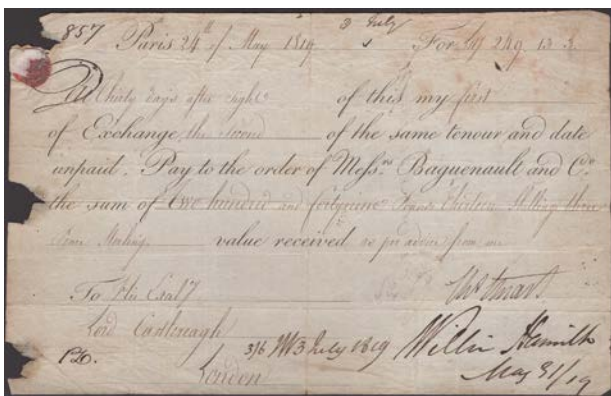 857 Paris 24th of May 1819 3 July For Stg 249. 13 3.
At Thirty days after sight of this my first
of Exchange the second of the same tenour and date
unpaid. Pay to the order of Messrs. Baguenault and Co.
the sum of two hundred and fortynine Pounds Thirteen Shillings three
Pence Sterling value received as per advice from me
To His Excely Chs Stuart
Lord Castlereagh
London
3/6 July 1819
Willm Hamilton
May 31/19